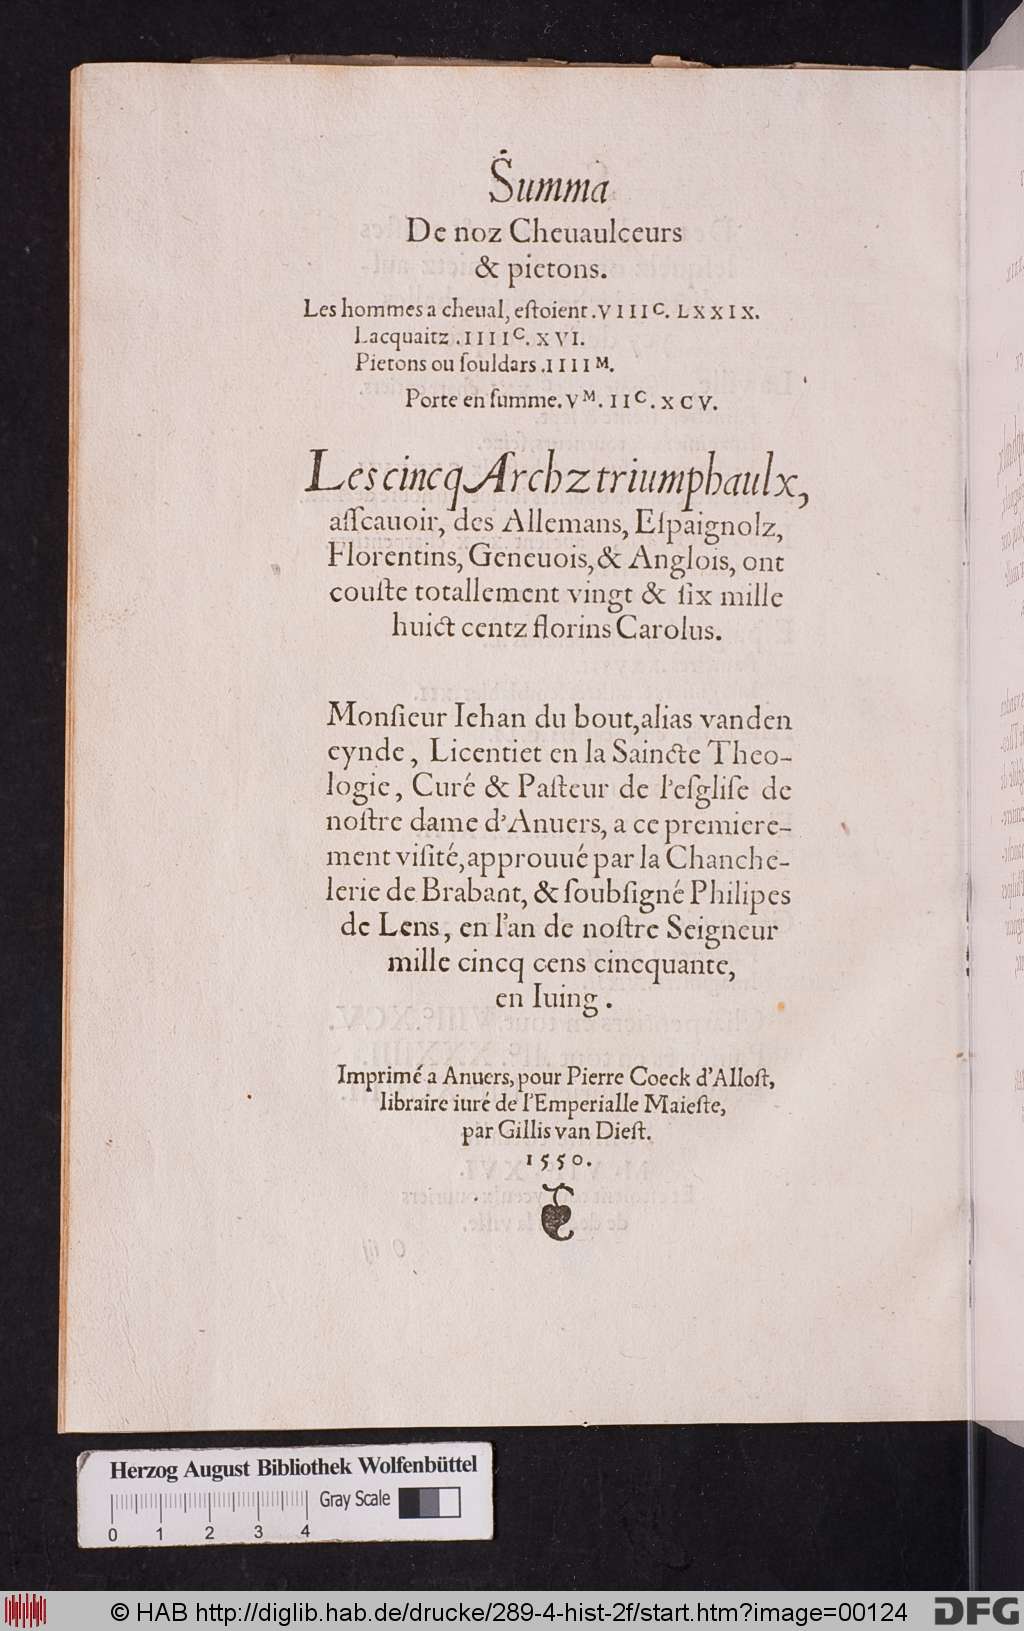 Summa
De noz Cheuaulceurs
& pietons.
Les hommes a cheual, eſtoient .VIIIC. LXXIX.
Lacquaitz .IIIIC. XVI.
Pietons ou ſouldars .IIIIM.
Porte en ſumme. VM. IIC. XCV.
Les cincq Archz triumphaulx,
aſſcauoir, des Allemans, Eſpaignolz,
Florentins, Geneuois, & Anglois, ont
couſte totallement vingt & ſix mille
huict centz florins Carolus.
Monſieur Iehan du bout, alias vanden
eynde, Licentiet en la Saincte Theo-
logie, Curé & Paſteur de l'eſgliſe de
noſtre dame d'Anuers, a ce premiere-
ment viſité, approuué par la Chanche-
lerie de Brabant, & ſoubſigné Philipes
de Lens, en l'an de noſtre Seigneur
mille cincq cens cincquante,
en Iuing.
Imprimé a Anuers, pour Pierre Coeck d'Alloſt,
libraire iuré de l'Emperialle Maieſte,
par Gillis van Dieſt.
1550.
Herzog August Bibliothek Wolfenbüttel
Gray Scale
0 1 2 3 4
© HAB http://diglib.hab.de/drucke/289-4-hist-2f/start.htm?image=00124
DFG